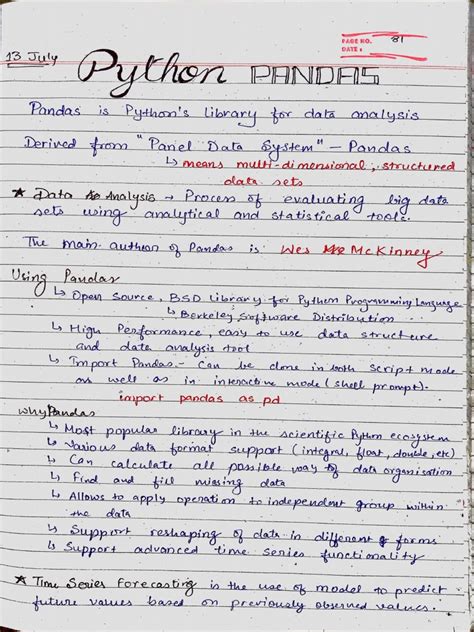 PAGE NO. 81
DATE:
13 July
Python PANDAS
Pandas is Python's library for data analysis
Derived from "Panel Data System" – Pandas
↳ means multi-dimensional, structured
data sets
★ Data Analysis → Process of evaluating big data
sets using analytical and statistical tools.
The main author of Pandas is Wes McKinney
Using Pandas
↳ Open Source, BSD library for Python Programming Language
↳ Berkeley Software Distribution
↳ High Performance, easy to use data structure
and data analysis tool
↳ Import Pandas - Can be done in both script mode
as well as in interactive mode (shell prompt).
import pandas as pd
Why Pandas
↳ Most popular library in the scientific Python ecosystem
↳ Various data format support (integral, float, double, etc)
↳ Can calculate all possible way of data organisation
↳ Find and fill missing data
↳ Allows to apply operation to independent group within
the data
↳ Support reshaping of data in different forms
↳ Support advanced time series functionality
★ Time Series Forecasting is the use of model to predict
future values based on previously observed values.